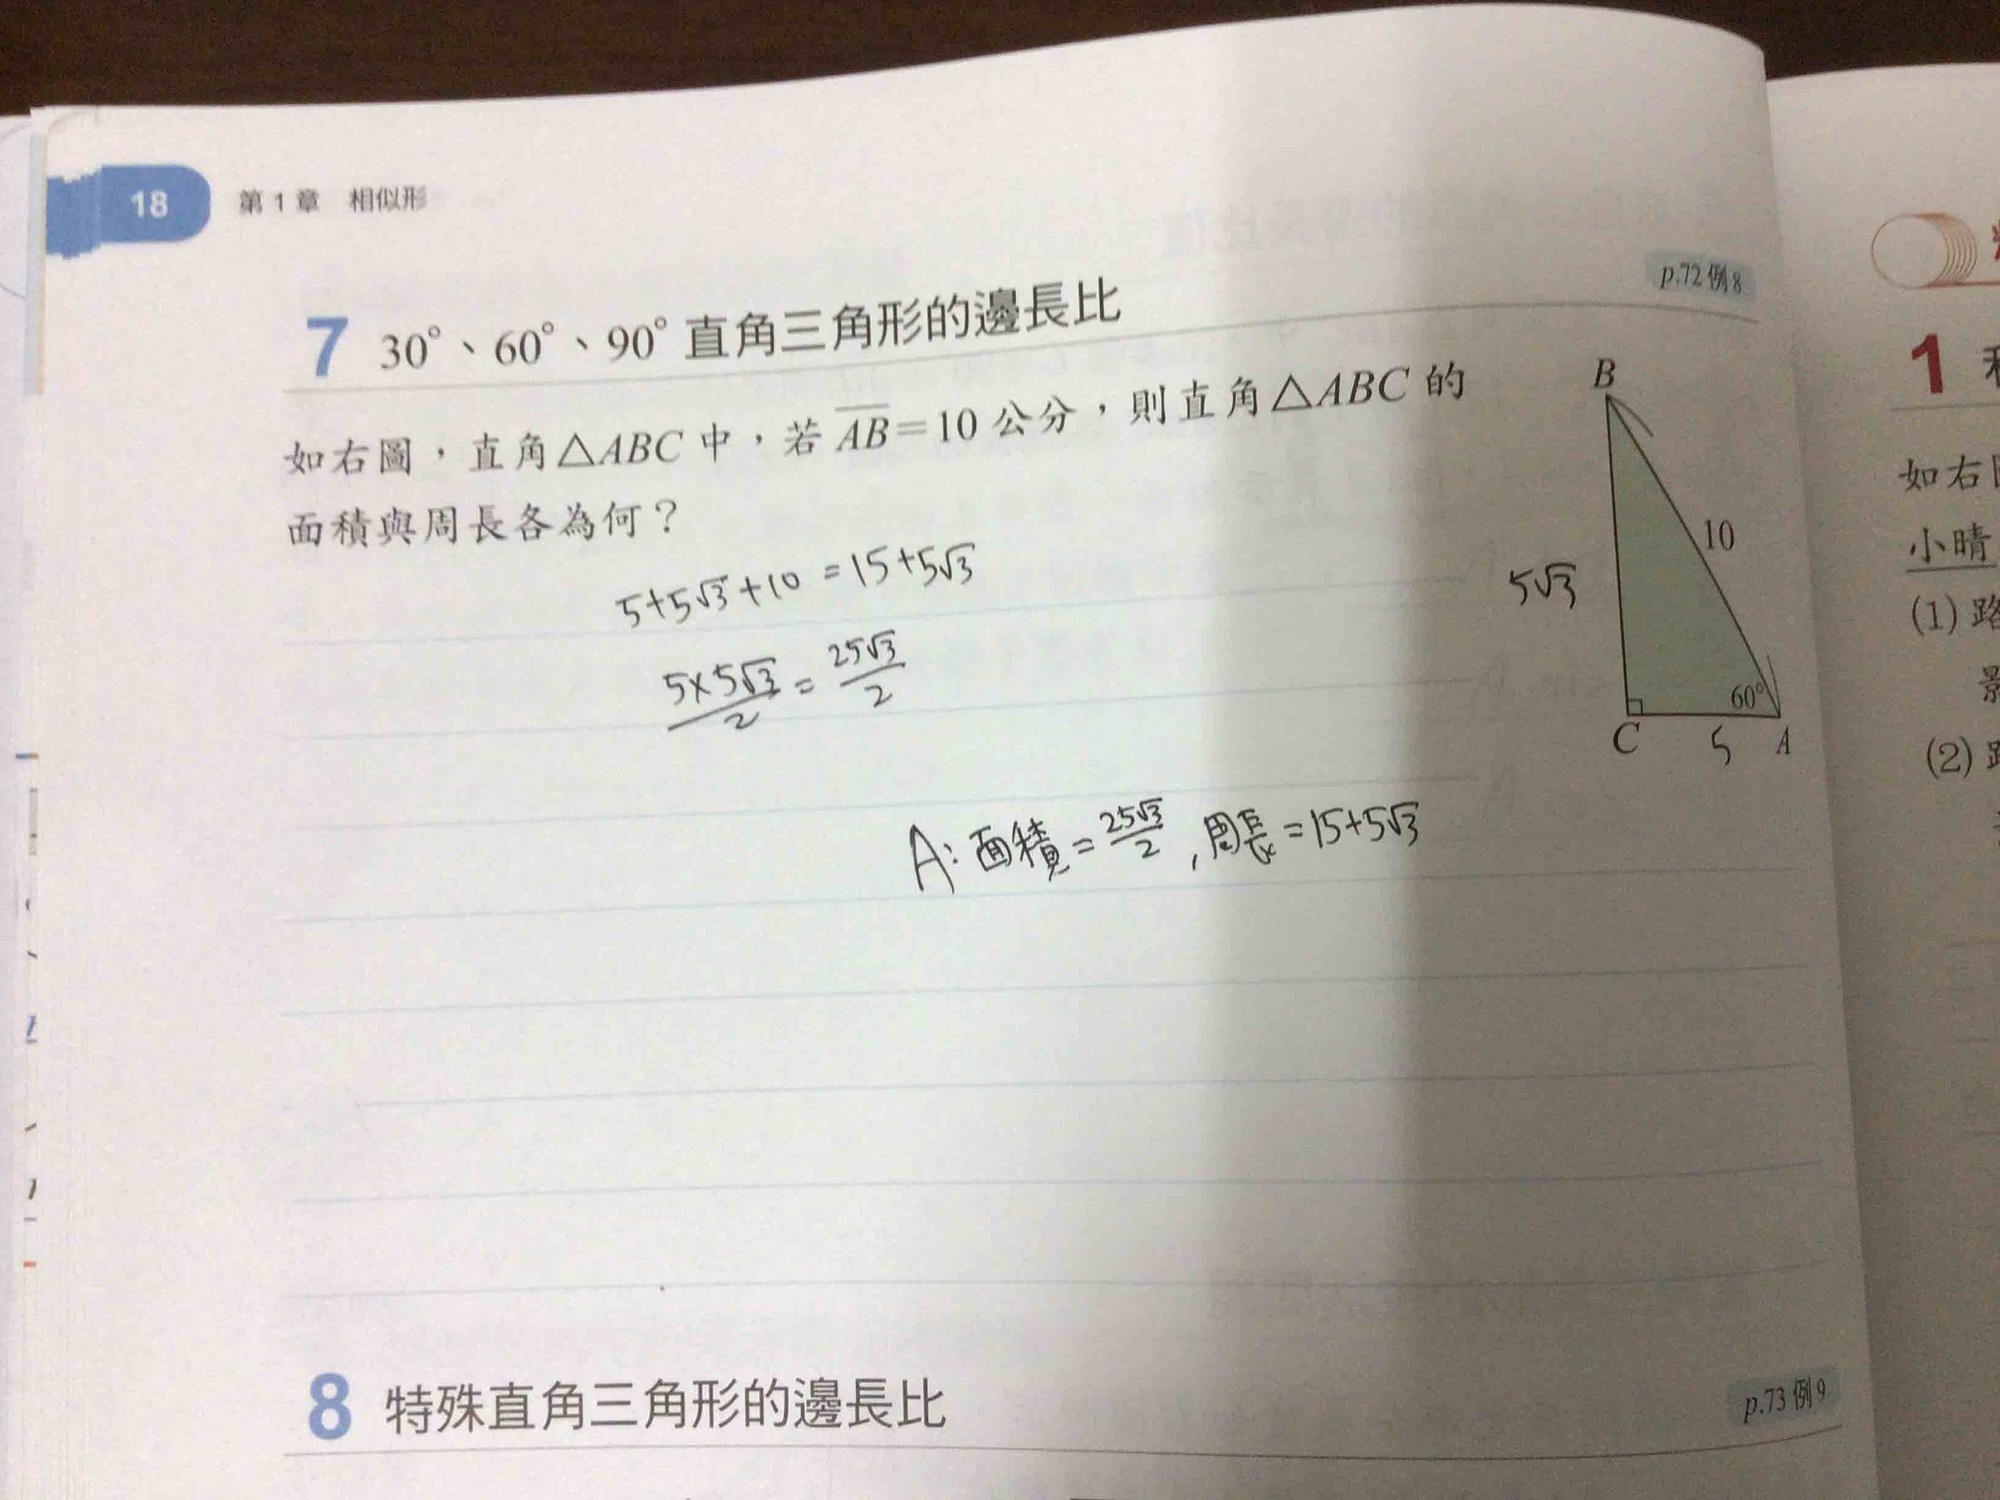 18 第1章 相似形
7 30°、60°、90°直角三角形的邊長比
p.72例8
如右圖，直角△ABC中，若AB=10公分，則直角△ABC的
面積與周長各為何？
5+5√3+10=15+5√3
5×5√3/2=25√3/2
A:面積=25√3/2,周長=15+5√3
B
10
5√3
60°
C
5
A
8 特殊直角三角形的邊長比
p.73例9
1
如右
小晴
(1)路
(2)